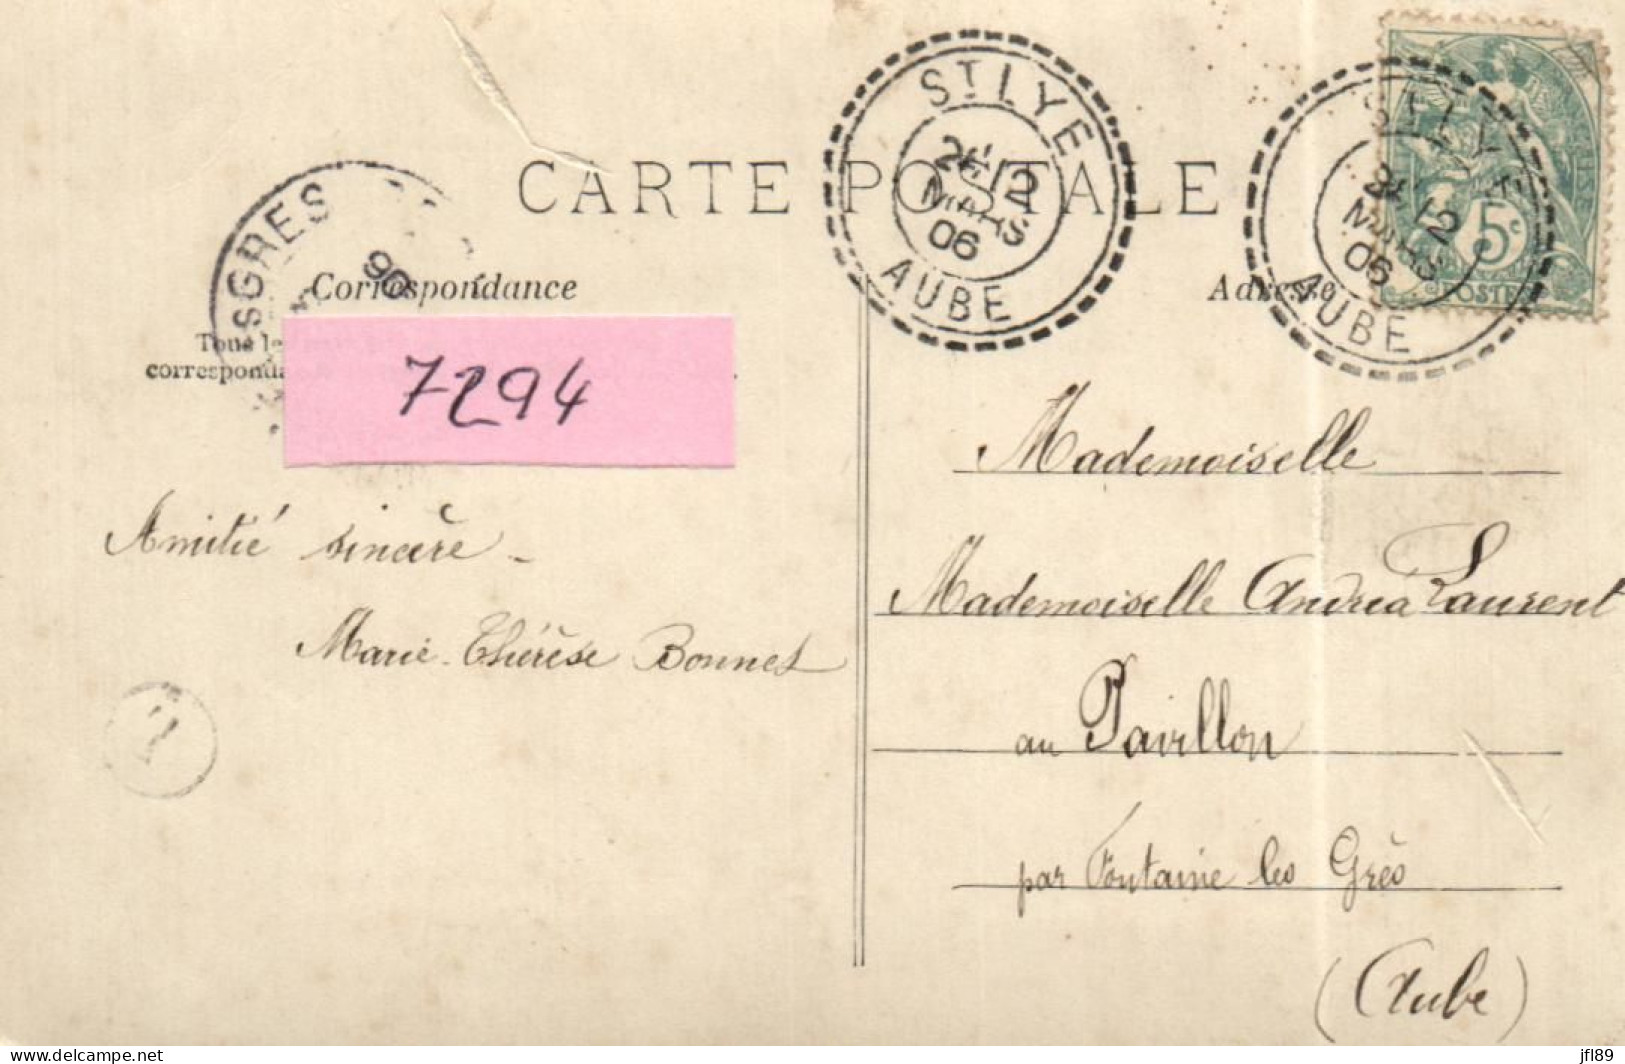 CARTE POSTALE
ST LYE
2E
12
MARS
06
AUBE
ST LYE
2E
12
MARS
06
AUBE
5c
POSTES
SGRES
06
Correspondance
Adresse
Tous le
correspond
7294
Mademoiselle
Mademoiselle Andréa Laurent
au Pavillon
par Fontaine les Grès
(Aube)
Amitié sincère -
Marie-Thérèse Bonnet
delcampe.net
jfl89